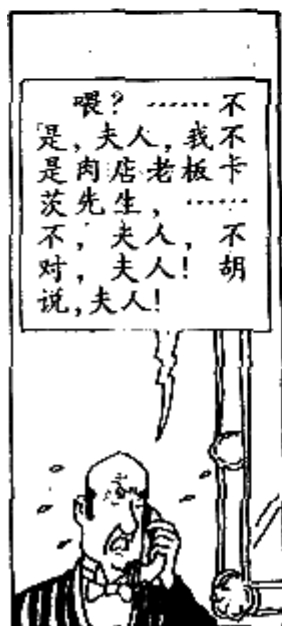 喂？……不
是，夫人，我不
是肉店老板卡
茨先生，……
不，夫人，不
对，夫人！胡
说，夫人！